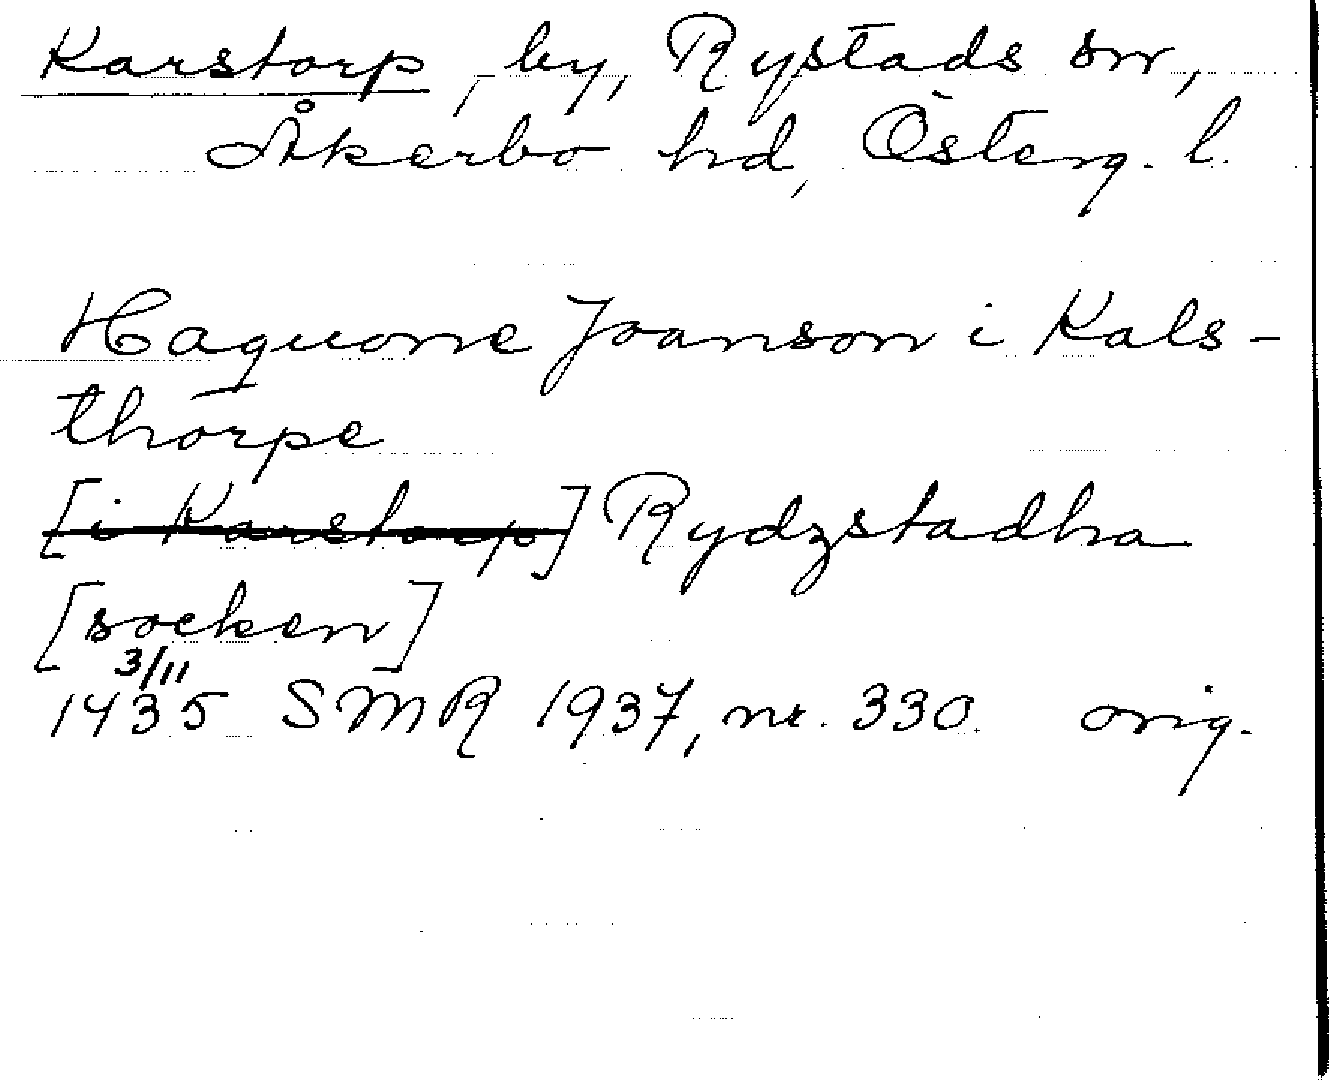 Karstorp, by, Rystads sn,
Åkerbo hd, Österg. l.
Haquone Joanson i Kals-
thorpe
[i Karstorp] Rydzstadha
[socken]
3/11
1435 SMR 1937, nr. 330. orig.